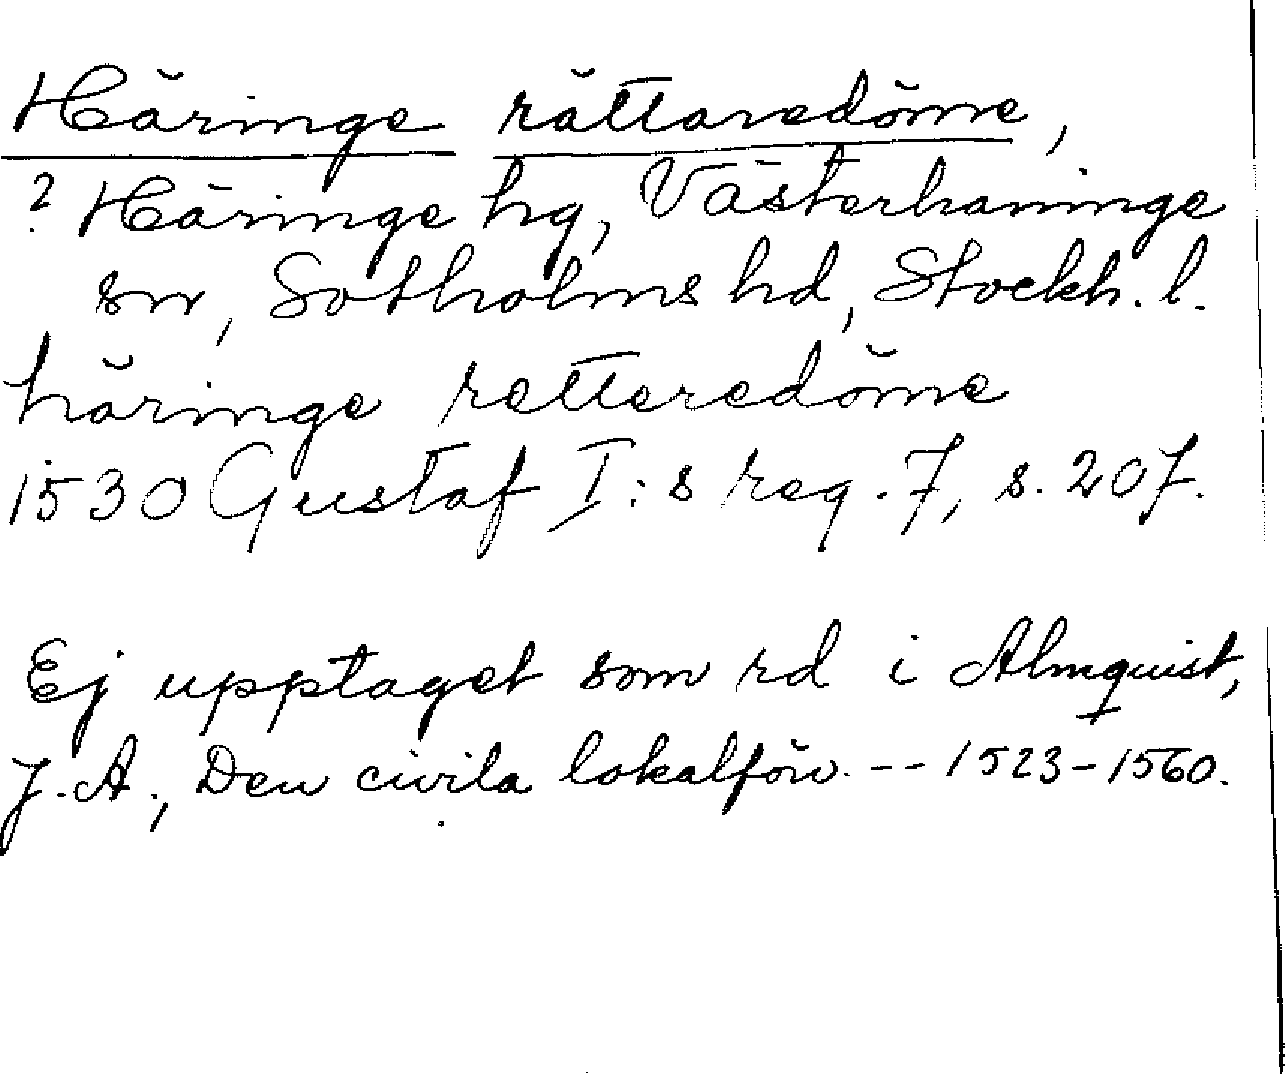 Häringe rättaredöme,
? Häringe hg, Västerhaninge
sn, Sotholms hd, Stockh. l.
häringe retteredöme
1530 Gustaf I:s reg. 7, s. 207.
Ej upptaget som rd i Almquist,
J. A., Den civila lokalförv. -- 1523-1560.